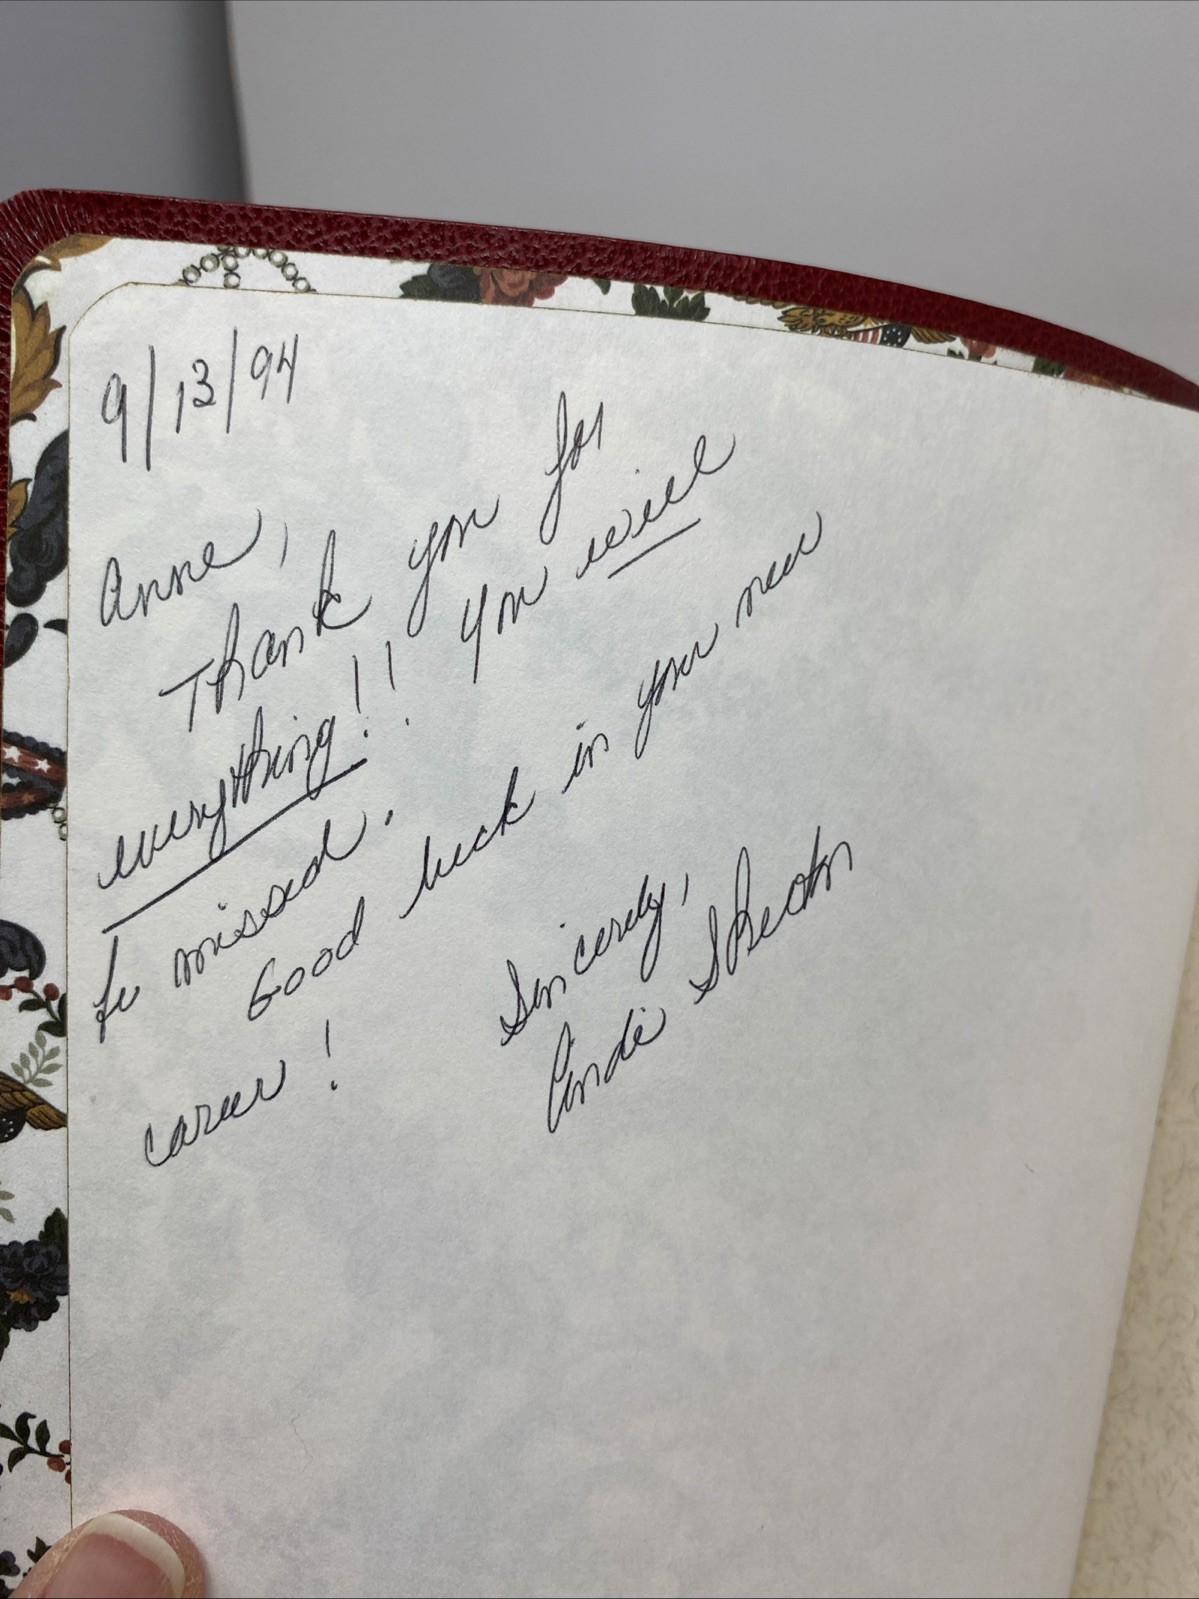 9/13/94
Anne,
Thank you for
everything!! You will
be missed.
Good luck in your new
career!
Sincerely,
Cindi